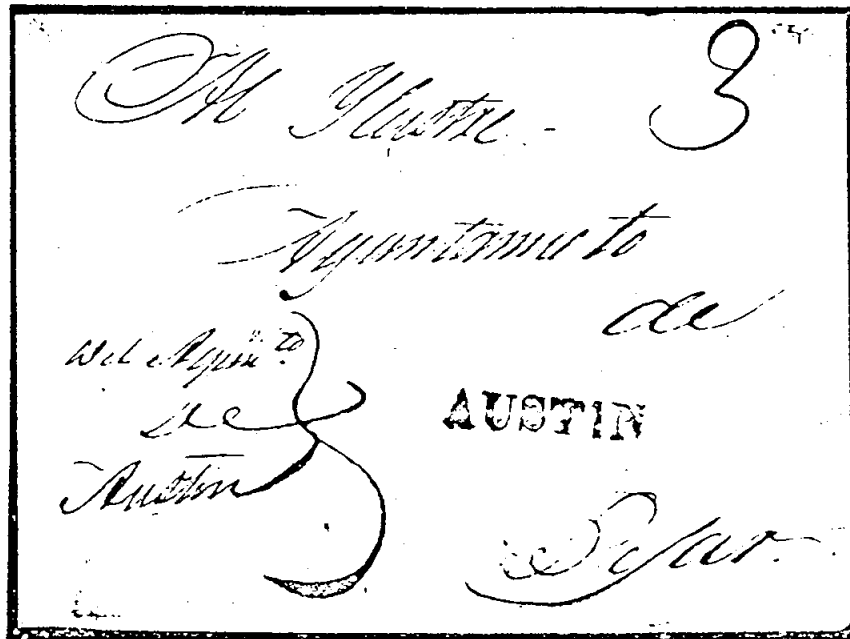 Al Ylustre 3
Ayuntamieto
de
Del Ayunto
de
Austin
AUSTIN
Bejar.